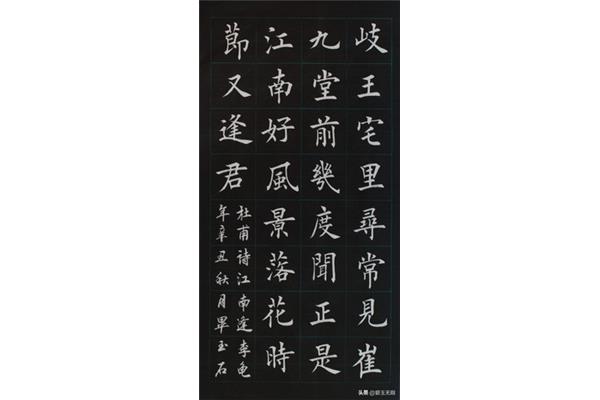 岐王宅里尋常見崔
九堂前幾度聞正是
江南好風景落花時
莭又逢君
杜甫詩江南逢李龟
年辛丑秋月畢玉石
头条